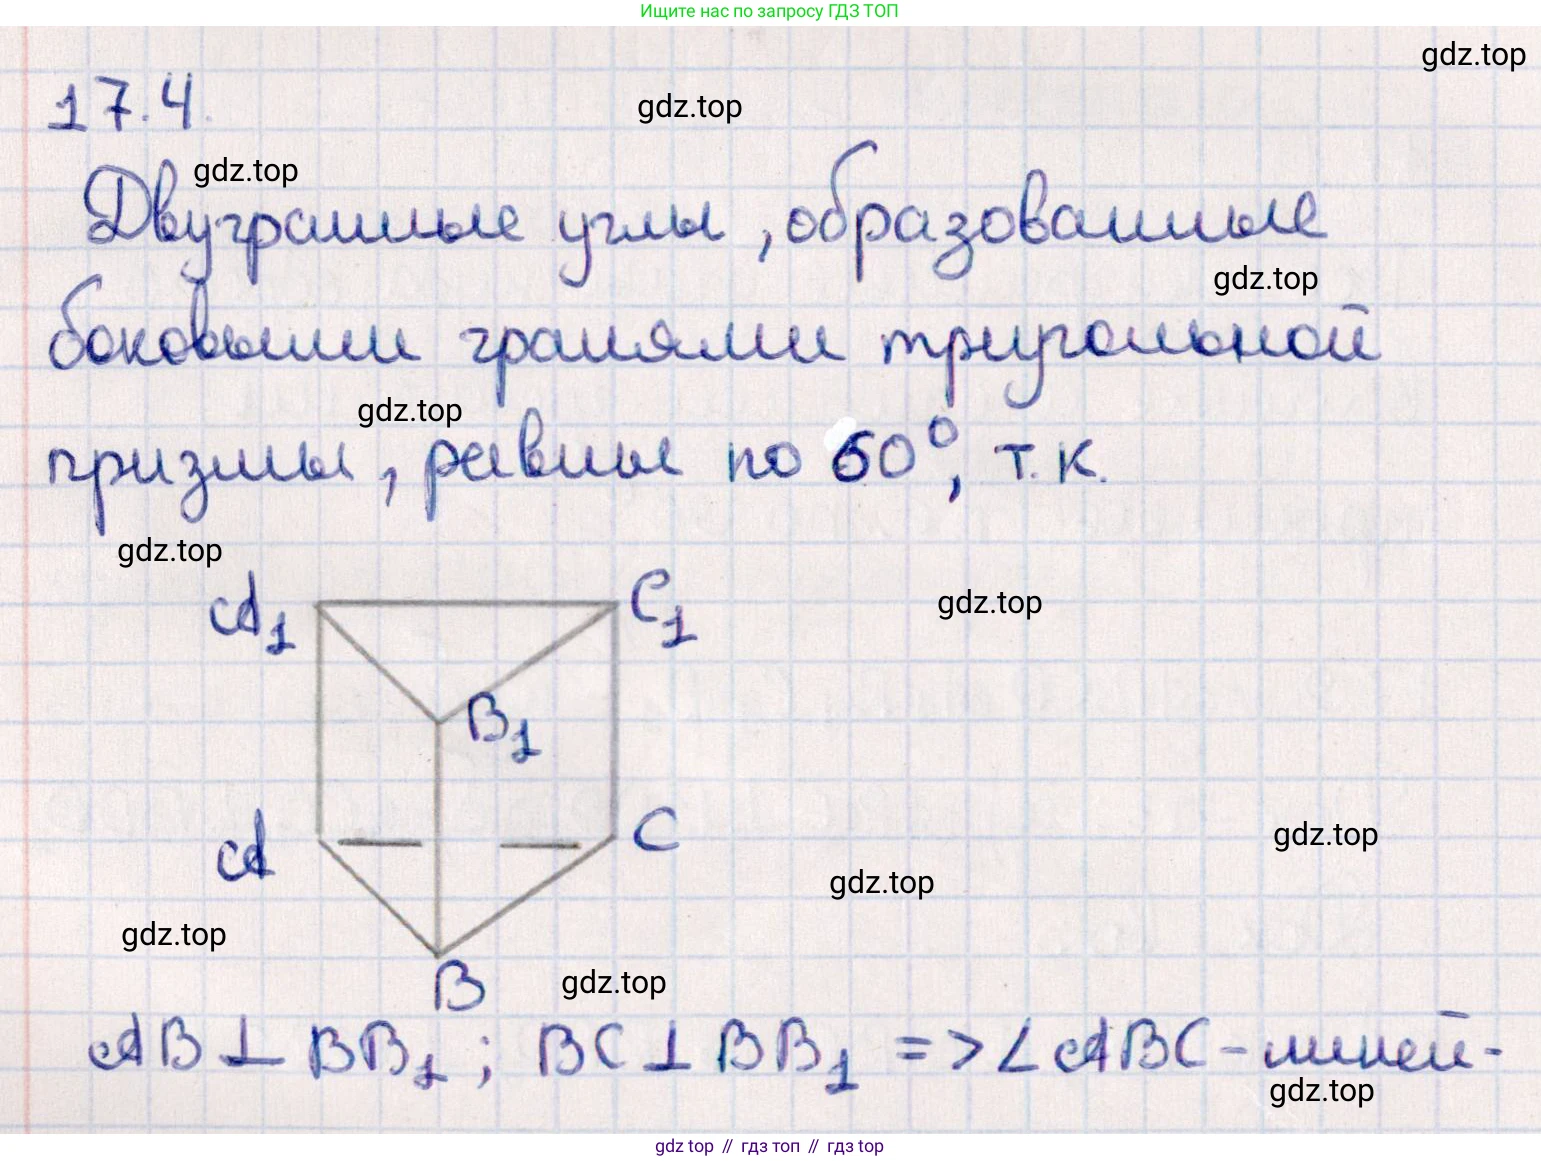 Ищите нас по запросу ГДЗ ТОП
gdz.top
17.4.
gdz.top
gdz.top
Двугранные углы, образованные
gdz.top
боковыми гранями треугольной
gdz.top
призмы, равны по 60°, т.к.
gdz.top
A₁
C₁
gdz.top
B₁
A
C
gdz.top
gdz.top
gdz.top
B
gdz.top
AB ⊥ BB₁; BC ⊥ BB₁ => ∠ABC - линей-
gdz.top
gdz top // гдз топ // гдз top